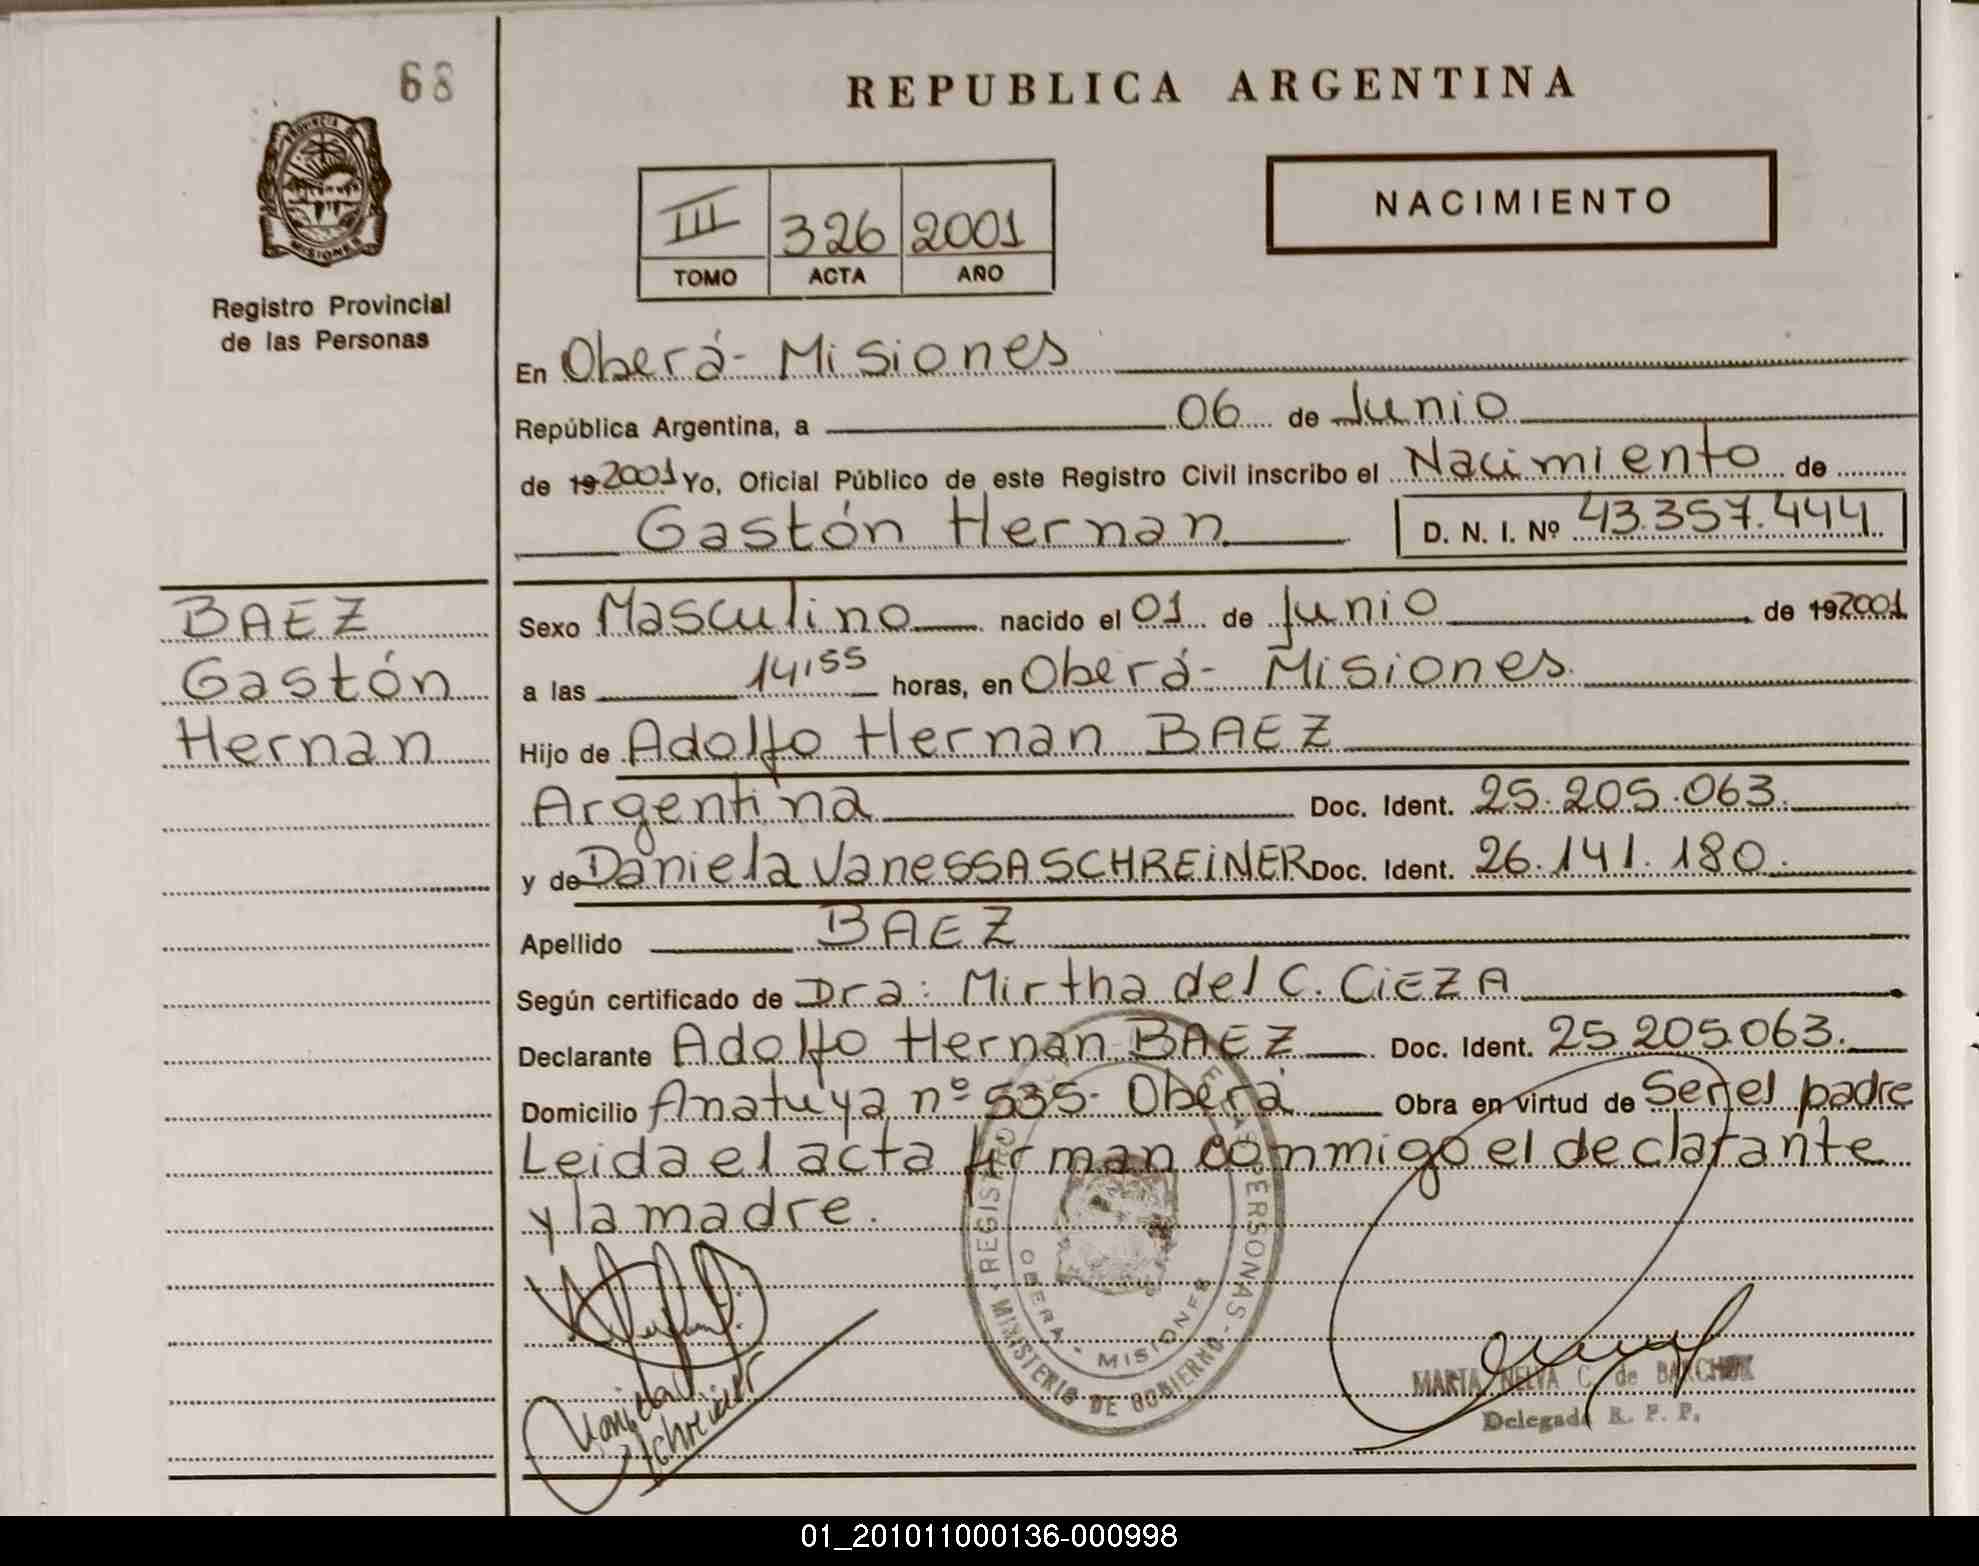 68
REPUBLICA ARGENTINA
PROVINCIA DE
MISIONES
Registro Provincial
de las Personas
III 326 2001
TOMO ACTA AÑO
NACIMIENTO
En Oberá - Misiones
República Argentina, a 06 de Junio
de 19 2001 Yo, Oficial Público de este Registro Civil inscribo el Nacimiento de
Gastón Hernan D. N. I. Nº 43.357.444
BAEZ
Gastón
Hernan
Sexo Masculino nacido el 01 de Junio de 19 2001
a las 14,55 horas, en Oberá - Misiones
Hijo de Adolfo Hernan BAEZ
Argentina Doc. Ident. 25.205.063.
y de Daniela VanessA SCHREINER Doc. Ident. 26.141.180.
Apellido BAEZ
Según certificado de Dra: Mirtha del C. CiEZA
Declarante Adolfo Hernan BAEZ Doc. Ident. 25.205.063.
Domicilio Anatuya nº 535- Oberá Obra en virtud de Ser el padre
Leida el acta firman commigo el declarante
y la madre.
REGISTRO PERSONAS - MINISTERIO DE GOBIERNO
OBERA - MISIONES
Schreiner
MARTA NELVA C. de
Delegada R. P. P.
01_201011000136-000998